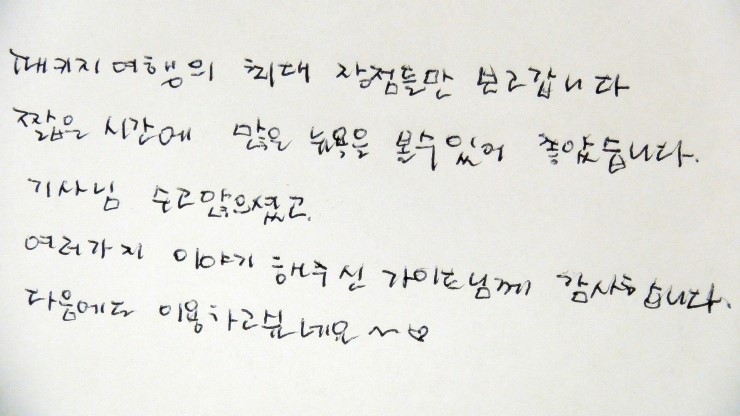 패키지여행의 최대 장점들만 보고갑니다
짧은 시간에 많은 뉴욕을 볼수있어 좋았습니다.
기사님 수고많으셨고,
여러가지 이야기 해주신 가이드님께 감사합니다.
다음에도 이용하고싶네요~♡